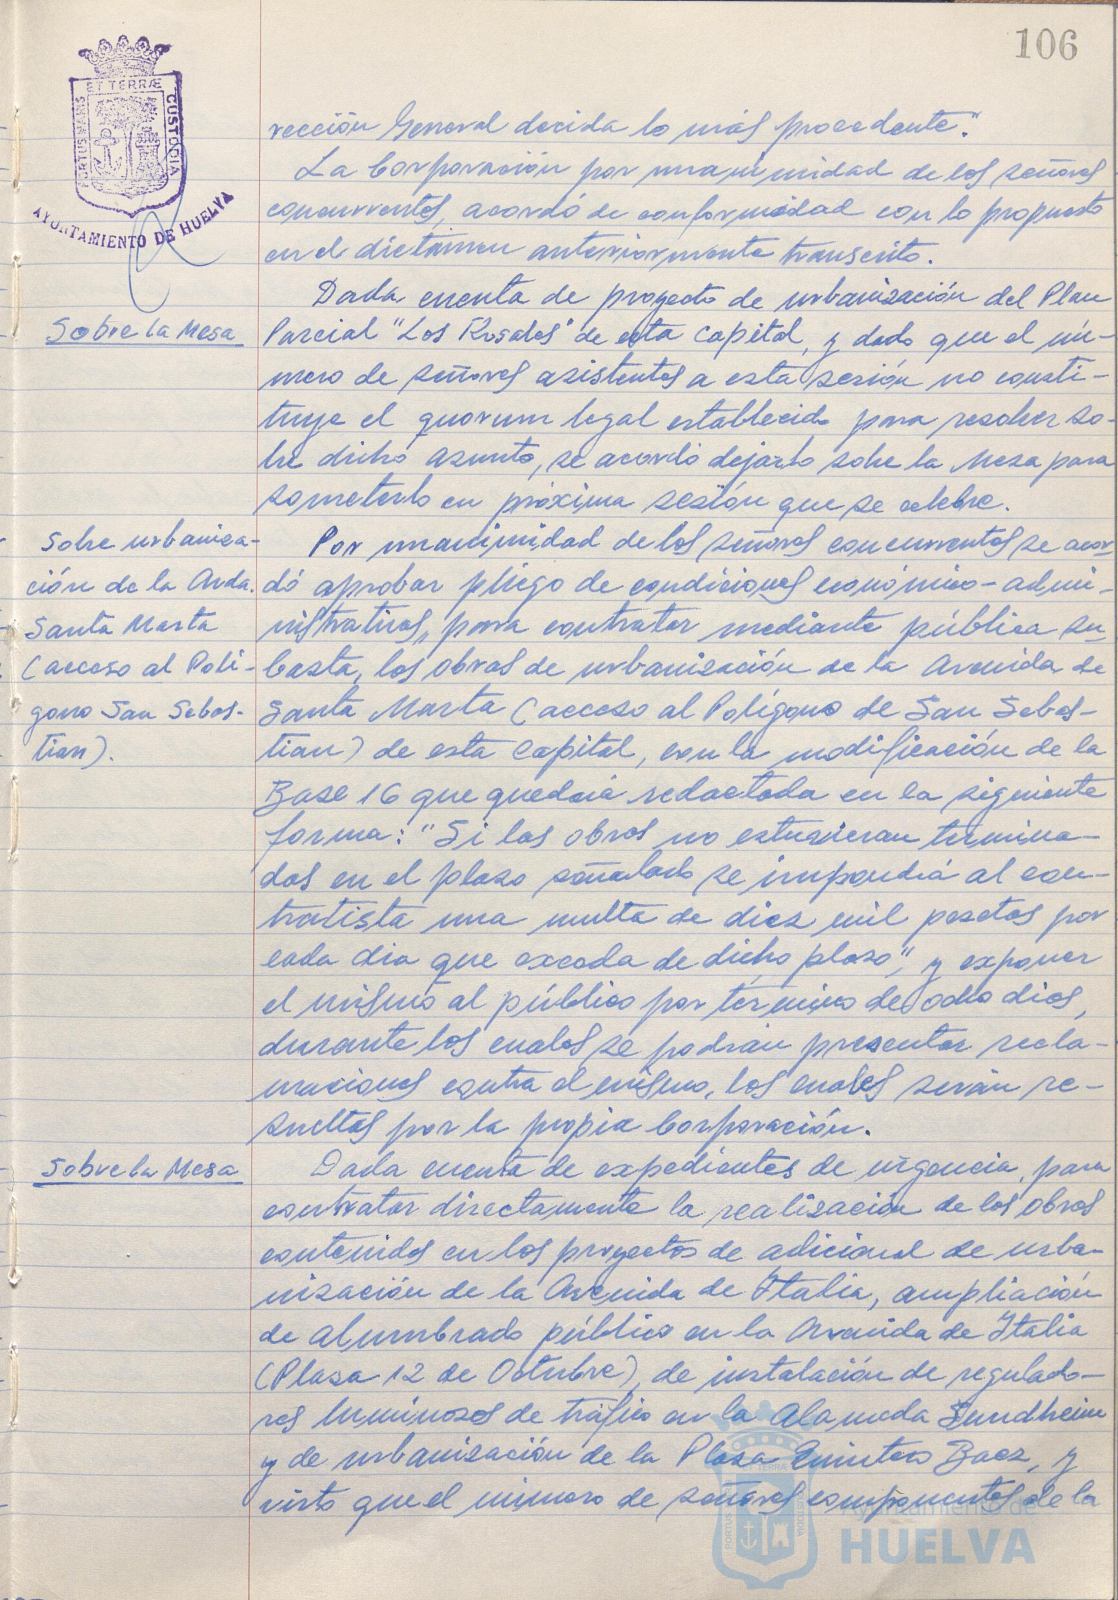 106
ET TERRÆ
PORTUS MARIS
CUSTODIA
AYUNTAMIENTO DE HUELVA
rección General decida lo más procedente".
La Corporación por unanimidad de los señores
concurrentes, acordó de conformidad con lo propuesto
en el dictamen anteriormente transcrito.
Sobre la Mesa
Dada cuenta de proyecto de urbanización del Plan
Parcial "Los Rosales" de esta Capital, y dado que el nú-
mero de señores asistentes a esta sesión no consti-
tuye el quorum legal establecido para resolver so-
bre dicho asunto, se acordó dejarlo sobre la Mesa para
someterlo en próxima sesión que se celebre.
Sobre urbaniza-
ción de la Avda.
Santa Marta
(acceso al Polí-
gono San Sebas-
tian).
Por unanimidad de los señores concurrentes se acor-
dó aprobar pliego de condiciones económico-admi-
nistrativas, para contratar mediante pública su-
basta, las obras de urbanización de la Avenida de
Santa Marta (acceso al Polígono de San Sebas-
tian) de esta Capital, con la modificación de la
Base 16 que quedará redactada en la siguiente
forma: "Si las obras no estuvieran termina-
das en el plazo señalado se impondrá al con-
tratista una multa de diez mil pesetas por
cada dia que exceda de dicho plazo", y exponer
el mismo al público por término de ocho dias,
durante los cuales se podrán presentar recla-
maciones contra el mismo, las cuales serán re-
sueltas por la propia Corporación.
Sobre la Mesa
Dada cuenta de expedientes de urgencia, para
contratar directamente la realización de las obras
contenidas en los proyectos de adicional de urba-
nización de la Avenida de Italia, ampliación
de alumbrado público en la Avenida de Italia
(Plaza 12 de Octubre), de instalación de regulado-
res luminosos de tráfico en la Alameda Sundheim
y de urbanización de la Plaza Quintero Baez, y
visto que el número de señores componentes de la
Ayuntamiento de
HUELVA